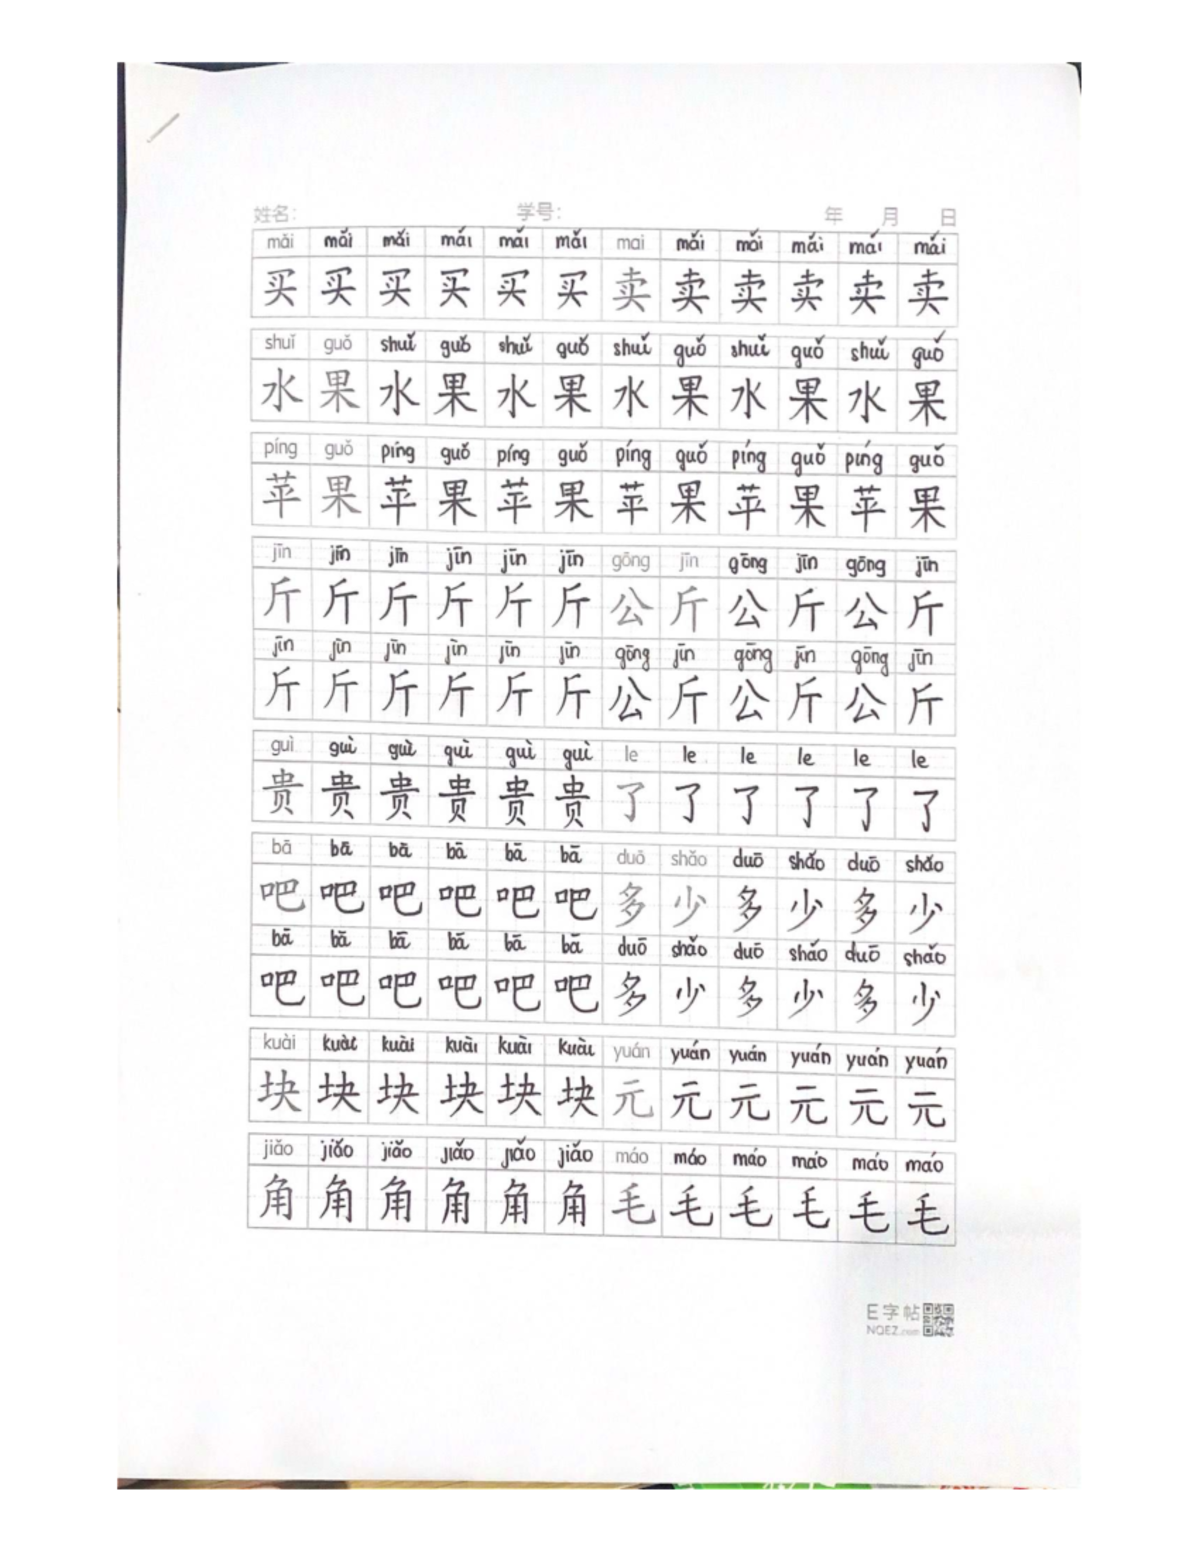 姓名： 学号： 年 月 日
mǎi mǎi mǎi mǎi mǎi mǎi mai mǎi mǎi mǎi mǎi mǎi
买 买 买 买 买 买 卖 卖 卖 卖 卖 卖
shuǐ guǒ shuǐ guǒ shuǐ guǒ shuǐ guǒ shuǐ guǒ shuǐ guǒ
水 果 水 果 水 果 水 果 水 果 水 果
píng guǒ píng guǒ píng guǒ píng guǒ píng guǒ píng guǒ
苹 果 苹 果 苹 果 苹 果 苹 果 苹 果
jīn jīn jīn jīn jīn jīn gōng jīn gōng jīn gōng jīn
斤 斤 斤 斤 斤 斤 公 斤 公 斤 公 斤
jīn jīn jīn jīn jīn jīn gōng jīn gōng jīn gōng jīn
斤 斤 斤 斤 斤 斤 公 斤 公 斤 公 斤
guì guì guì guì guì guì le le le le le le
贵 贵 贵 贵 贵 贵 了 了 了 了 了 了
bā bā bā bā bā bā duō shǎo duō shǎo duō shǎo
吧 吧 吧 吧 吧 吧 多 少 多 少 多 少
bā bā bā bā bā bā duō shǎo duō shǎo duō shǎo
吧 吧 吧 吧 吧 吧 多 少 多 少 多 少
kuài kuài kuài kuài kuài kuài yuán yuán yuán yuán yuán yuán
块 块 块 块 块 块 元 元 元 元 元 元
jiǎo jiǎo jiǎo jiǎo jiǎo jiǎo máo máo máo máo máo máo
角 角 角 角 角 角 毛 毛 毛 毛 毛 毛
E字帖
NQEZ.com